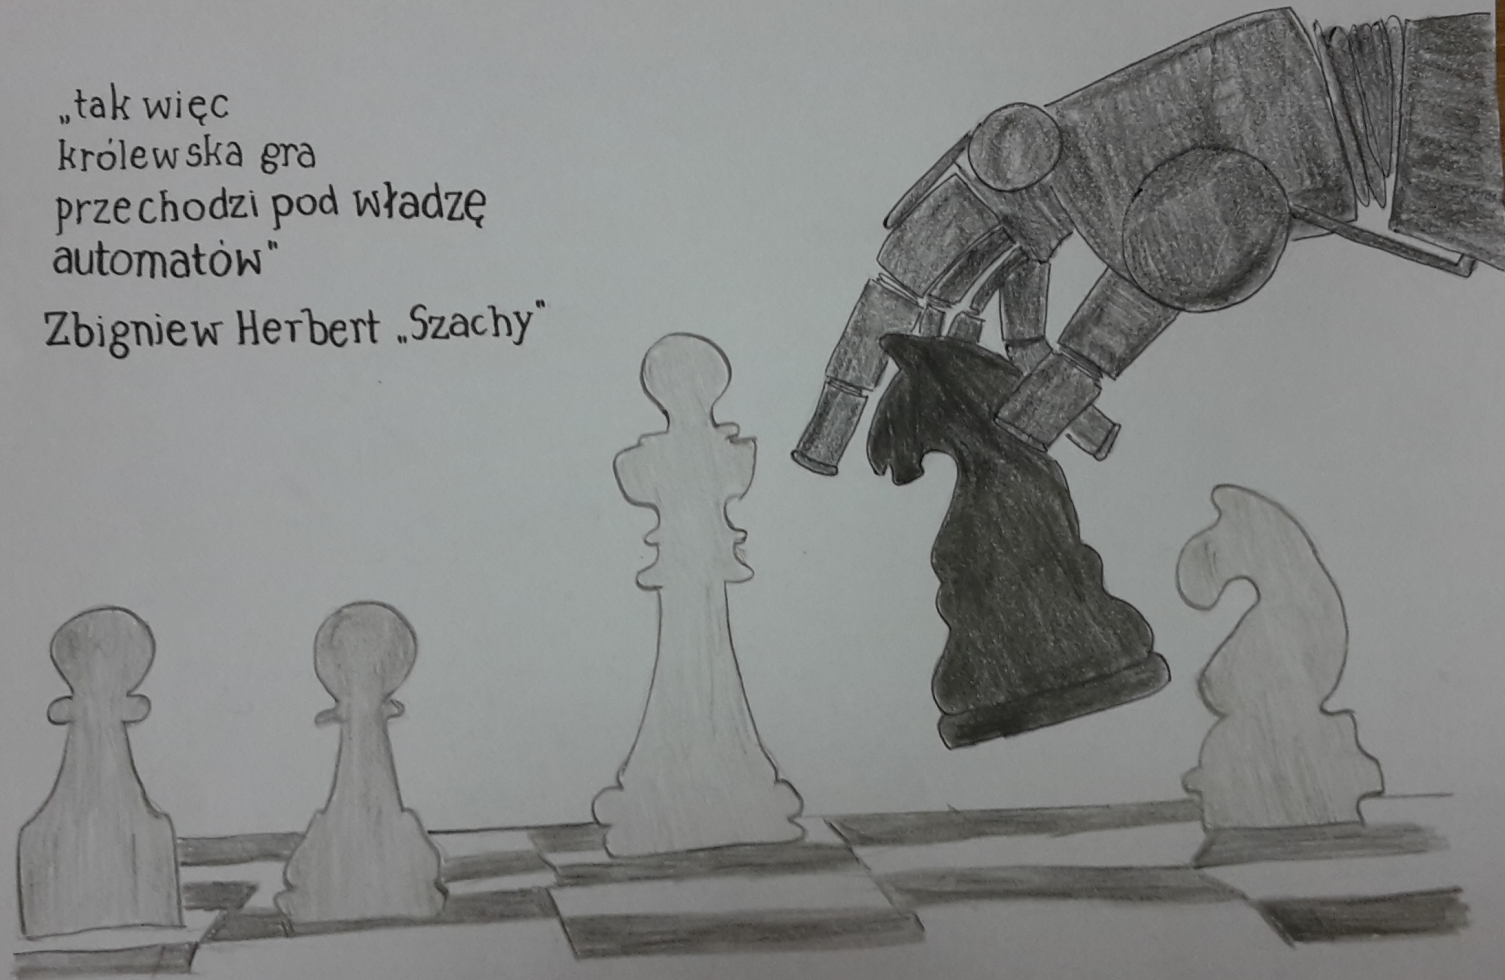 „tak więc
królewska gra
przechodzi pod władzę
automatów"
Zbigniew Herbert „Szachy"